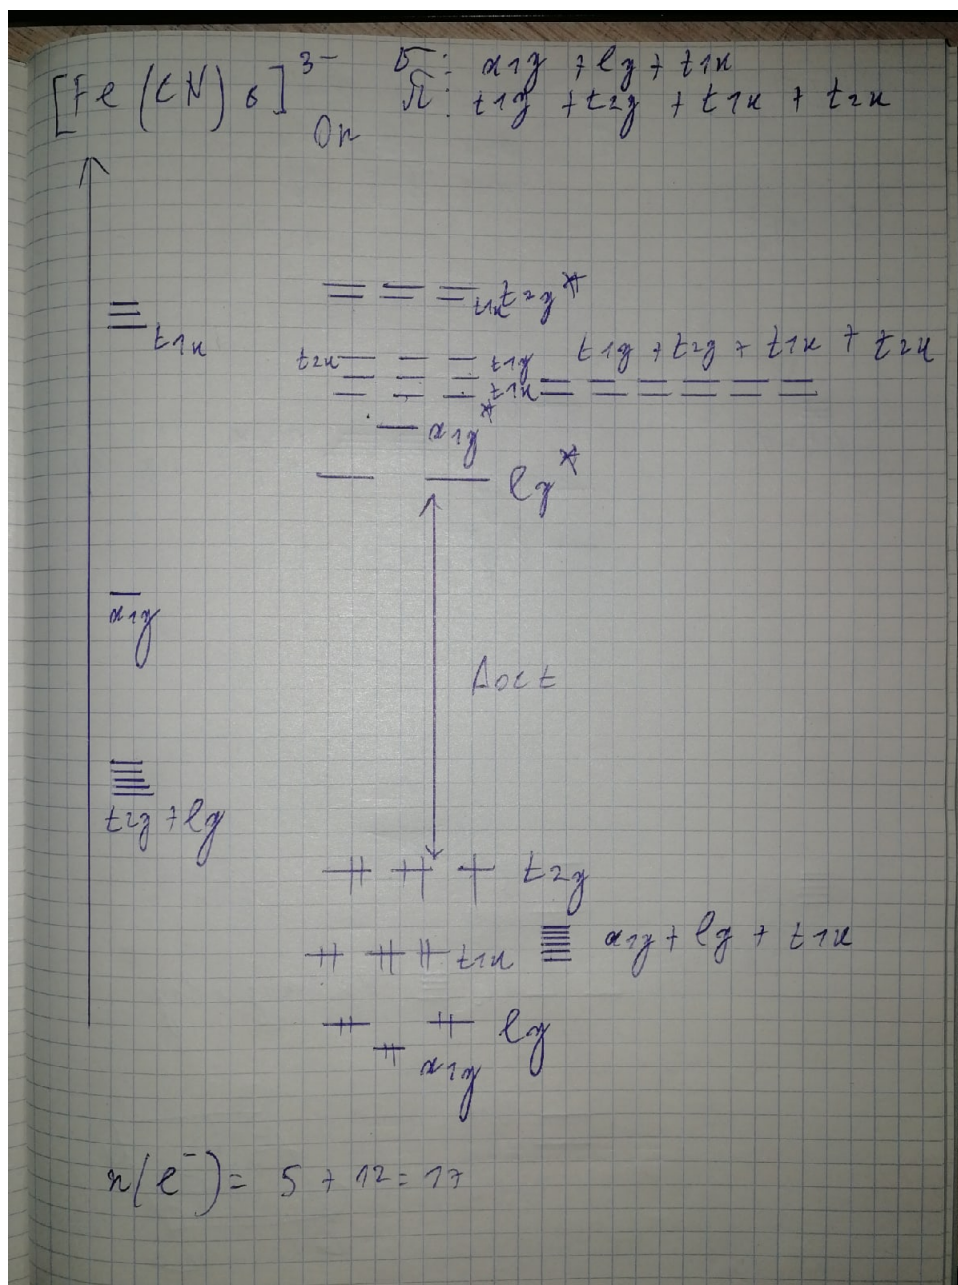 [Fe(CN)6]3-
Oh
σ: a1g + eg + t1u
π: t1g + t2g + t1u + t2u
t1u t2g*
t1u
t2u t1g t1g + t2g + t1u + t2u
t1u
a1g*
eg*
a1g
Δoct
t2g + eg
t2g
t1u a1g + eg + t1u
eg
a1g
n(e-) = 5 + 12 = 17